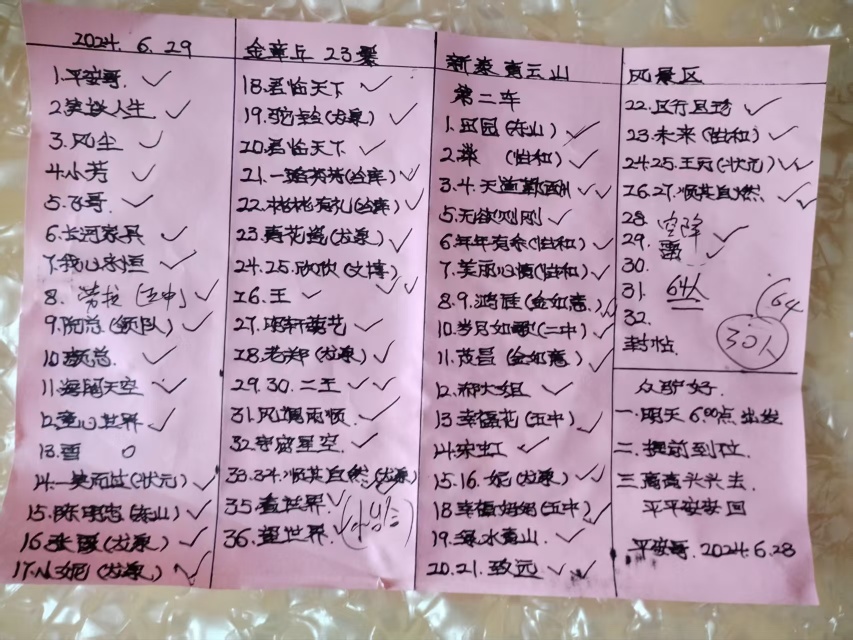 2024. 6. 29
1.平安哥. ✓
2.笑谈人生 ✓
3.风尘 ✓
4.小芳 ✓
5.飞哥. ✓
6.长河家具 ✓
7.我心永恒 ✓
8. 劳技(五中) ✓
9.阮总(领队) ✓
10.颜总. ✓
11.海阔天空 ✓
12.童心世界 ✓
13.雪 O
14.一笑而过(状元) ✓
15.陈明忠(东山) ✓
16.张霞(友泉) ✓
17.小妮(友泉) ✓
金章丘 23号
18.君临天下 ✓
19. (友泉) ✓
20.君临天下 ✓
21.一路芬芳(仓库) ✓
22.彬彬有礼(仓库) ✓
23.青花瓷(友泉) ✓
24.25.欣欣(文博) ✓✓
26.王 ✓ ✓
27.明轩 ✓
28.老郑(友泉) ✓
29.30.二王 ✓✓
31.风调雨顺. ✓
32.宇宙星空. ✓
33.34.顺其自然(友泉)
35. 世界. ✓
36. 世界. ✓
新泰黄云山
第二车
1.田园(东山) ✓
2. (怡和) ✓
3.4.天道酬勤 ✓✓
5.无欲则刚 ✓
6.年年有余(怡和) ✓
7.美丽心情(怡和) ✓
8.9.鸿雁(金如意) ✓✓
10.岁月如歌(二中) ✓
11.茂昌(金如意) ✓
12.郝大姐 ✓
13.幸福花(五中) ✓
14.宋虹 ✓
15.16.妮(友泉) ✓✓
18.幸福妈妈(五中) ✓
19.绿水青山. ✓
20.21.致远 ✓ ✓
风景区
22.且行且珍 ✓
23.未来(怡和) ✓
24.25.王元(状元) ✓✓
26.27.顺其自然 ✓✓
28. 空降
29. 雷 ✓
30.
31. 64人 64
32. 30人
封帖.
众驴好.
一.明天6:00点出发
二.提前到位.
三高高兴兴去.
平平安安回
平安哥.2024.6.28